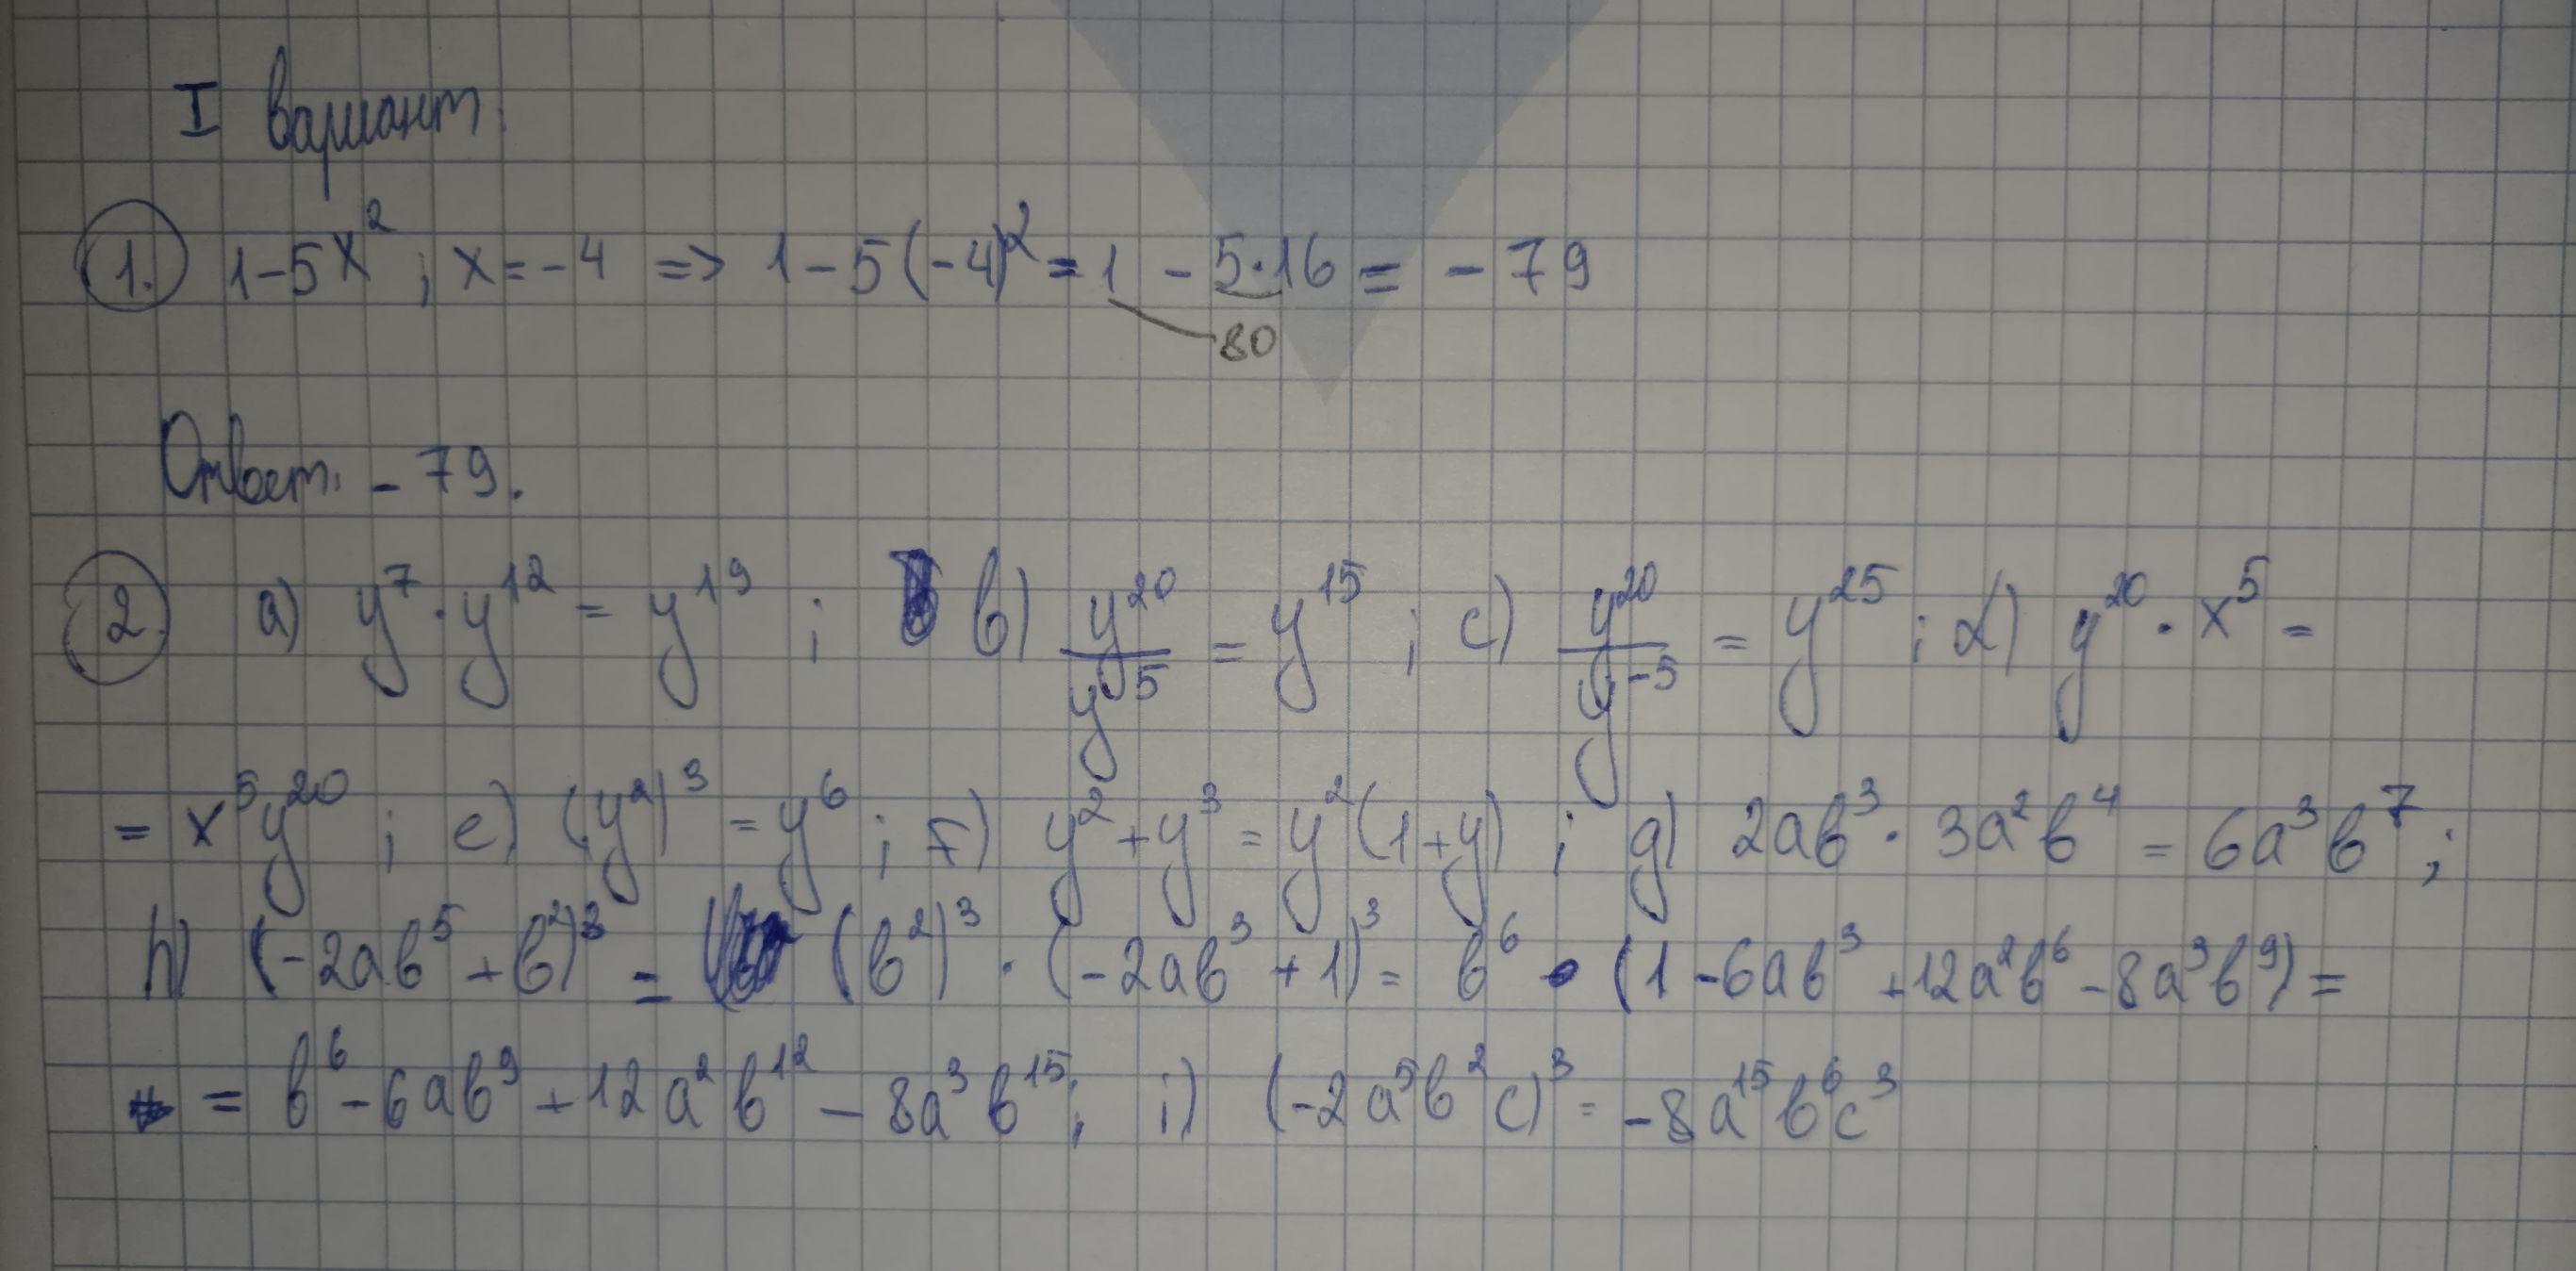 I вариант.
1. 1-5x² ; x=-4 => 1-5(-4)² = 1 - 5·16 = -79
80
Ответ: -79.
2. a) y⁷·y¹² = y¹⁹ ; b) y²⁰/y⁵ = y¹⁵ ; c) y²⁰/y⁻⁵ = y²⁵ ; d) y²⁰·x⁵ =
= x⁵y²⁰ ; e) (y²)³ = y⁶ ; f) y²+y³ = y²(1+y) ; g) 2ab³·3a²b⁴ = 6a³b⁷ ;
h) (-2ab⁵+b²)³ = (b²)³·(-2ab³+1)³ = b⁶·(1-6ab³+12a²b⁶-8a³b⁹) =
= b⁶-6ab⁹+12a²b¹²-8a³b¹⁵ ; i) (-2a⁵b²c)³ = -8a¹⁵b⁶c³